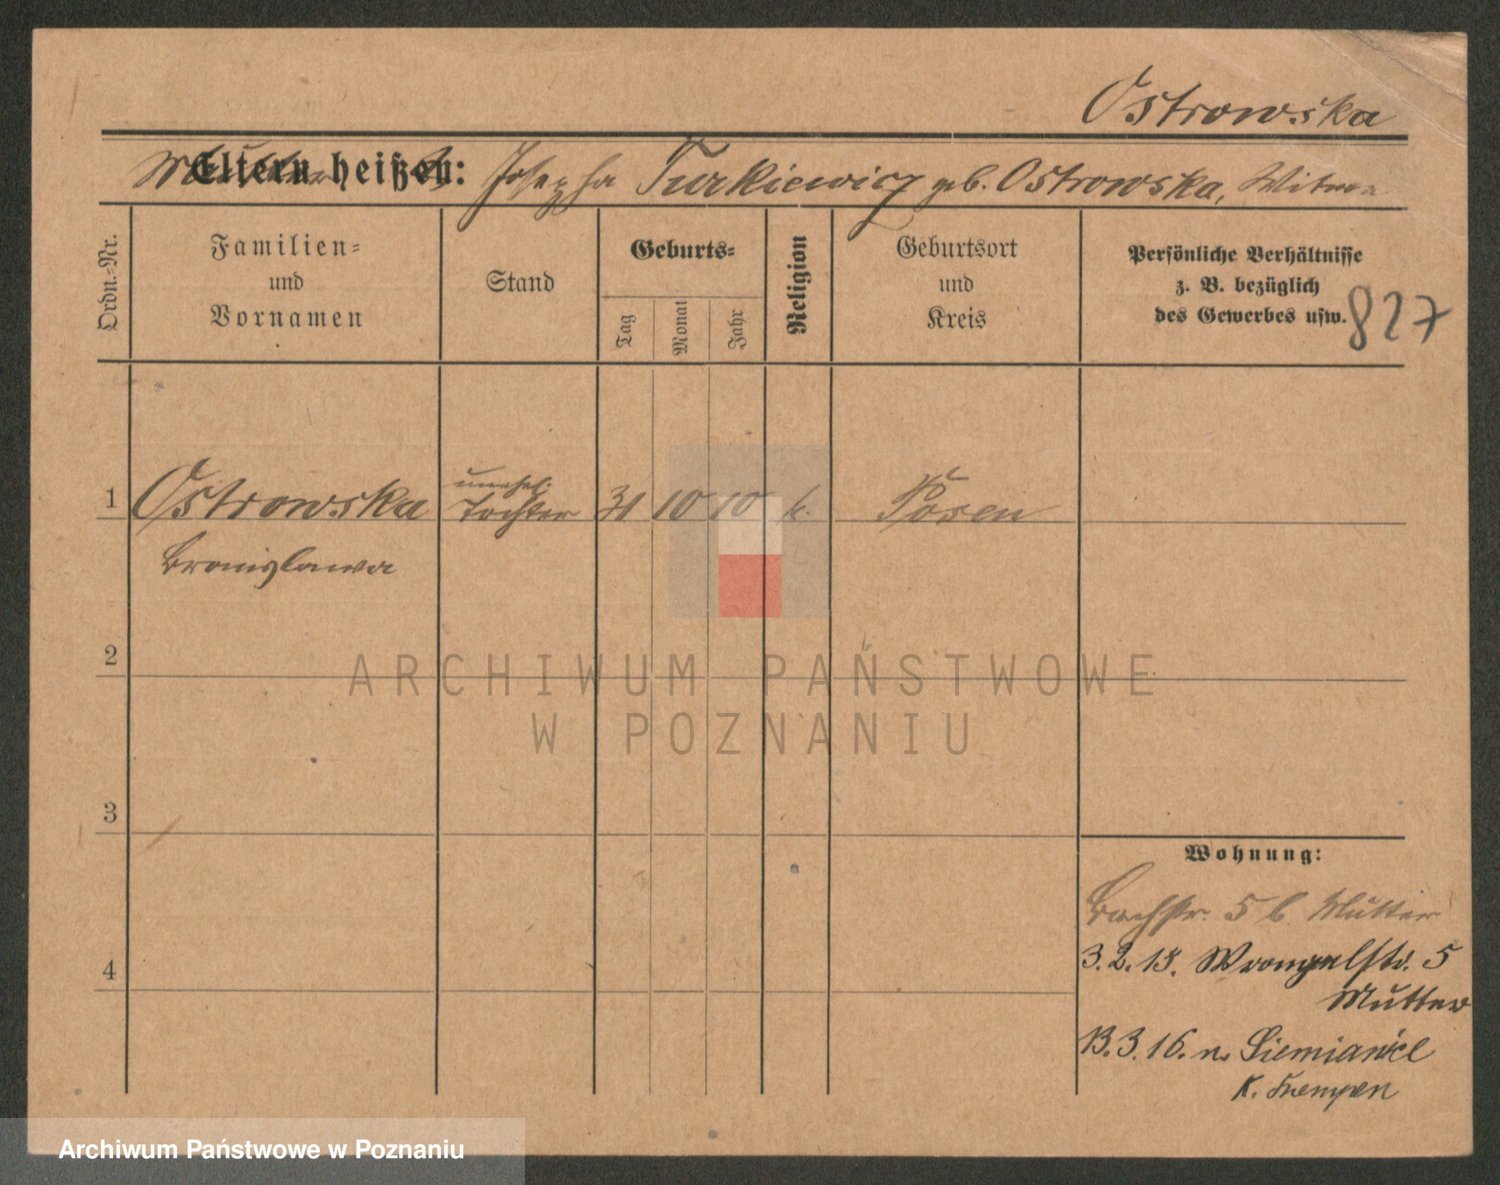 Ostrowska
Eltern heißen: Josepha Turkiewicz geb. Ostrowska, Witwe
Ordn.-Nr.
Familien-
und
Vornamen
Stand
Geburts-
Tag
Monat
Jahr
Religion
Geburtsort
und
Kreis
Persönliche Verhältnisse
z. B. bezüglich
des Gewerbes usw.
827
unehel.
1 Ostrowska Tochter 31 10 10 k. Posen
Bronislawa
2
ARCHIWUM PAŃSTWOWE
W POZNANIU
3
Wohnung:
Bachstr. 5 b. Mutter
4
3.2.15. Wrangelstr. 5
Mutter
13.3.16. n. Siemianice
K. Kempen
Archiwum Państwowe w Poznaniu